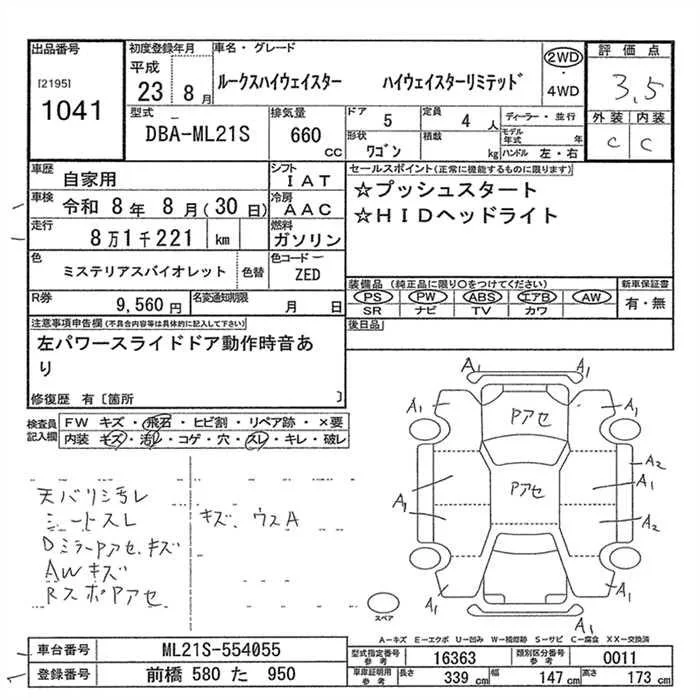 出品番号 初度登録年月 車名・グレード 評価点
[2195] 平成 ルークスハイウェイスター ハイウェイスターリミテッド 2WD・4WD 3.5
1041 23 8月 外装 内装
型式 排気量 ドア 5 定員 4人 ディーラー・並行 C C
DBA-ML21S 660cc 形状 ワゴン 積載 kg モデル年式 年 ハンドル 左・右
車歴 自家用 シフト IAT セールスポイント(正常に機能するものに限ります)
車検 令和 8年 8月(30日) 冷房 AAC ☆プッシュスタート
走行 8万1千221 km 燃料 ガソリン ☆HIDヘッドライト
色 ミステリアスバイオレット 色替 色コード ZED
装備品(純正品に限り〇をつけてください) 新車保証書
R券 9,560円 名変通知期限 月 日 PS PW ABS エアB AW 有・無
SR ナビ TV カワ
注意事項申告欄(不具合内容等は具体的に記入して下さい) 後日品
左パワースライドドア動作時音あ
り
修復歴 有〔箇所 〕
検査員記入欄 FW キズ・飛石・ヒビ割・リペア跡・×要
内装 キズ・汚レ・コゲ・穴・スレ・キレ・破レ
天バリ汚レ
シートスレ キズ、ウスA
DミラーPアセ、キズ
AWキズ
RスポPアセ
A1
A1 Pアセ A1
A2
Pアセ A1
A1 A2
A1 A1
A1
スペア
A-キズ E-エクボ U-凹み W-補修跡 S-サビ C-腐食 XX-交換済
車台番号 ML21S-554055 型式指定番号 参考 16363 類別区分番号 参考 0011
登録番号 前橋 580 た 950 車庫証明用 参考 長さ 339cm 幅 147cm 高さ 173cm